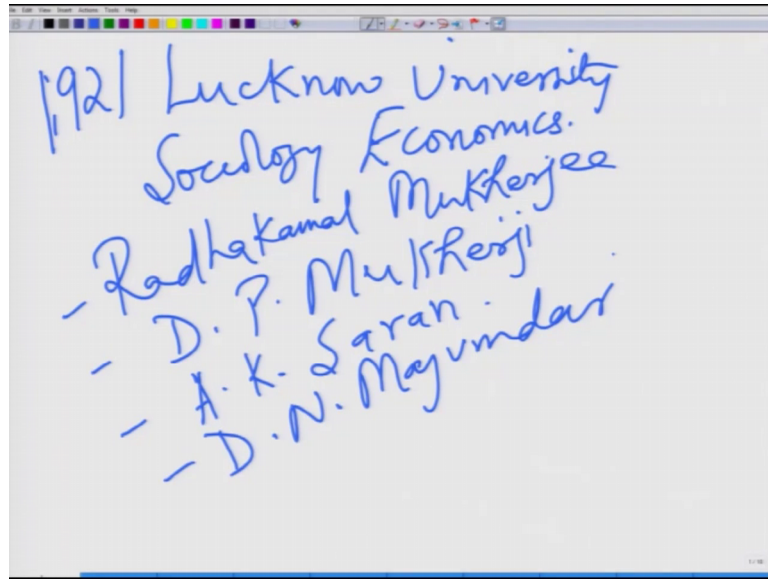 File Edit View Insert Actions Tools Help
1921 Lucknow University
Sociology Economics.
- Radhakamal Mukherjee
- D. P. Mukherji
- A. K. Saran.
- D. N. Majumdar
1/16